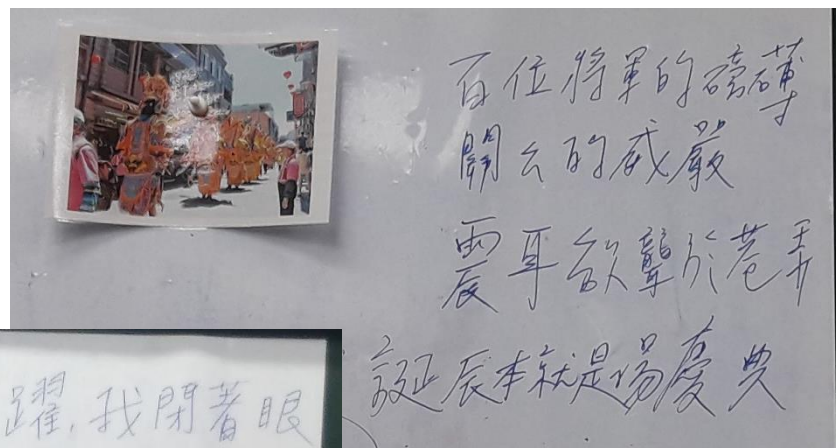 百位將軍的磅礡
關公的威嚴
震耳欲聾於巷弄
誕辰本就是場慶典
躍,我閉著眼